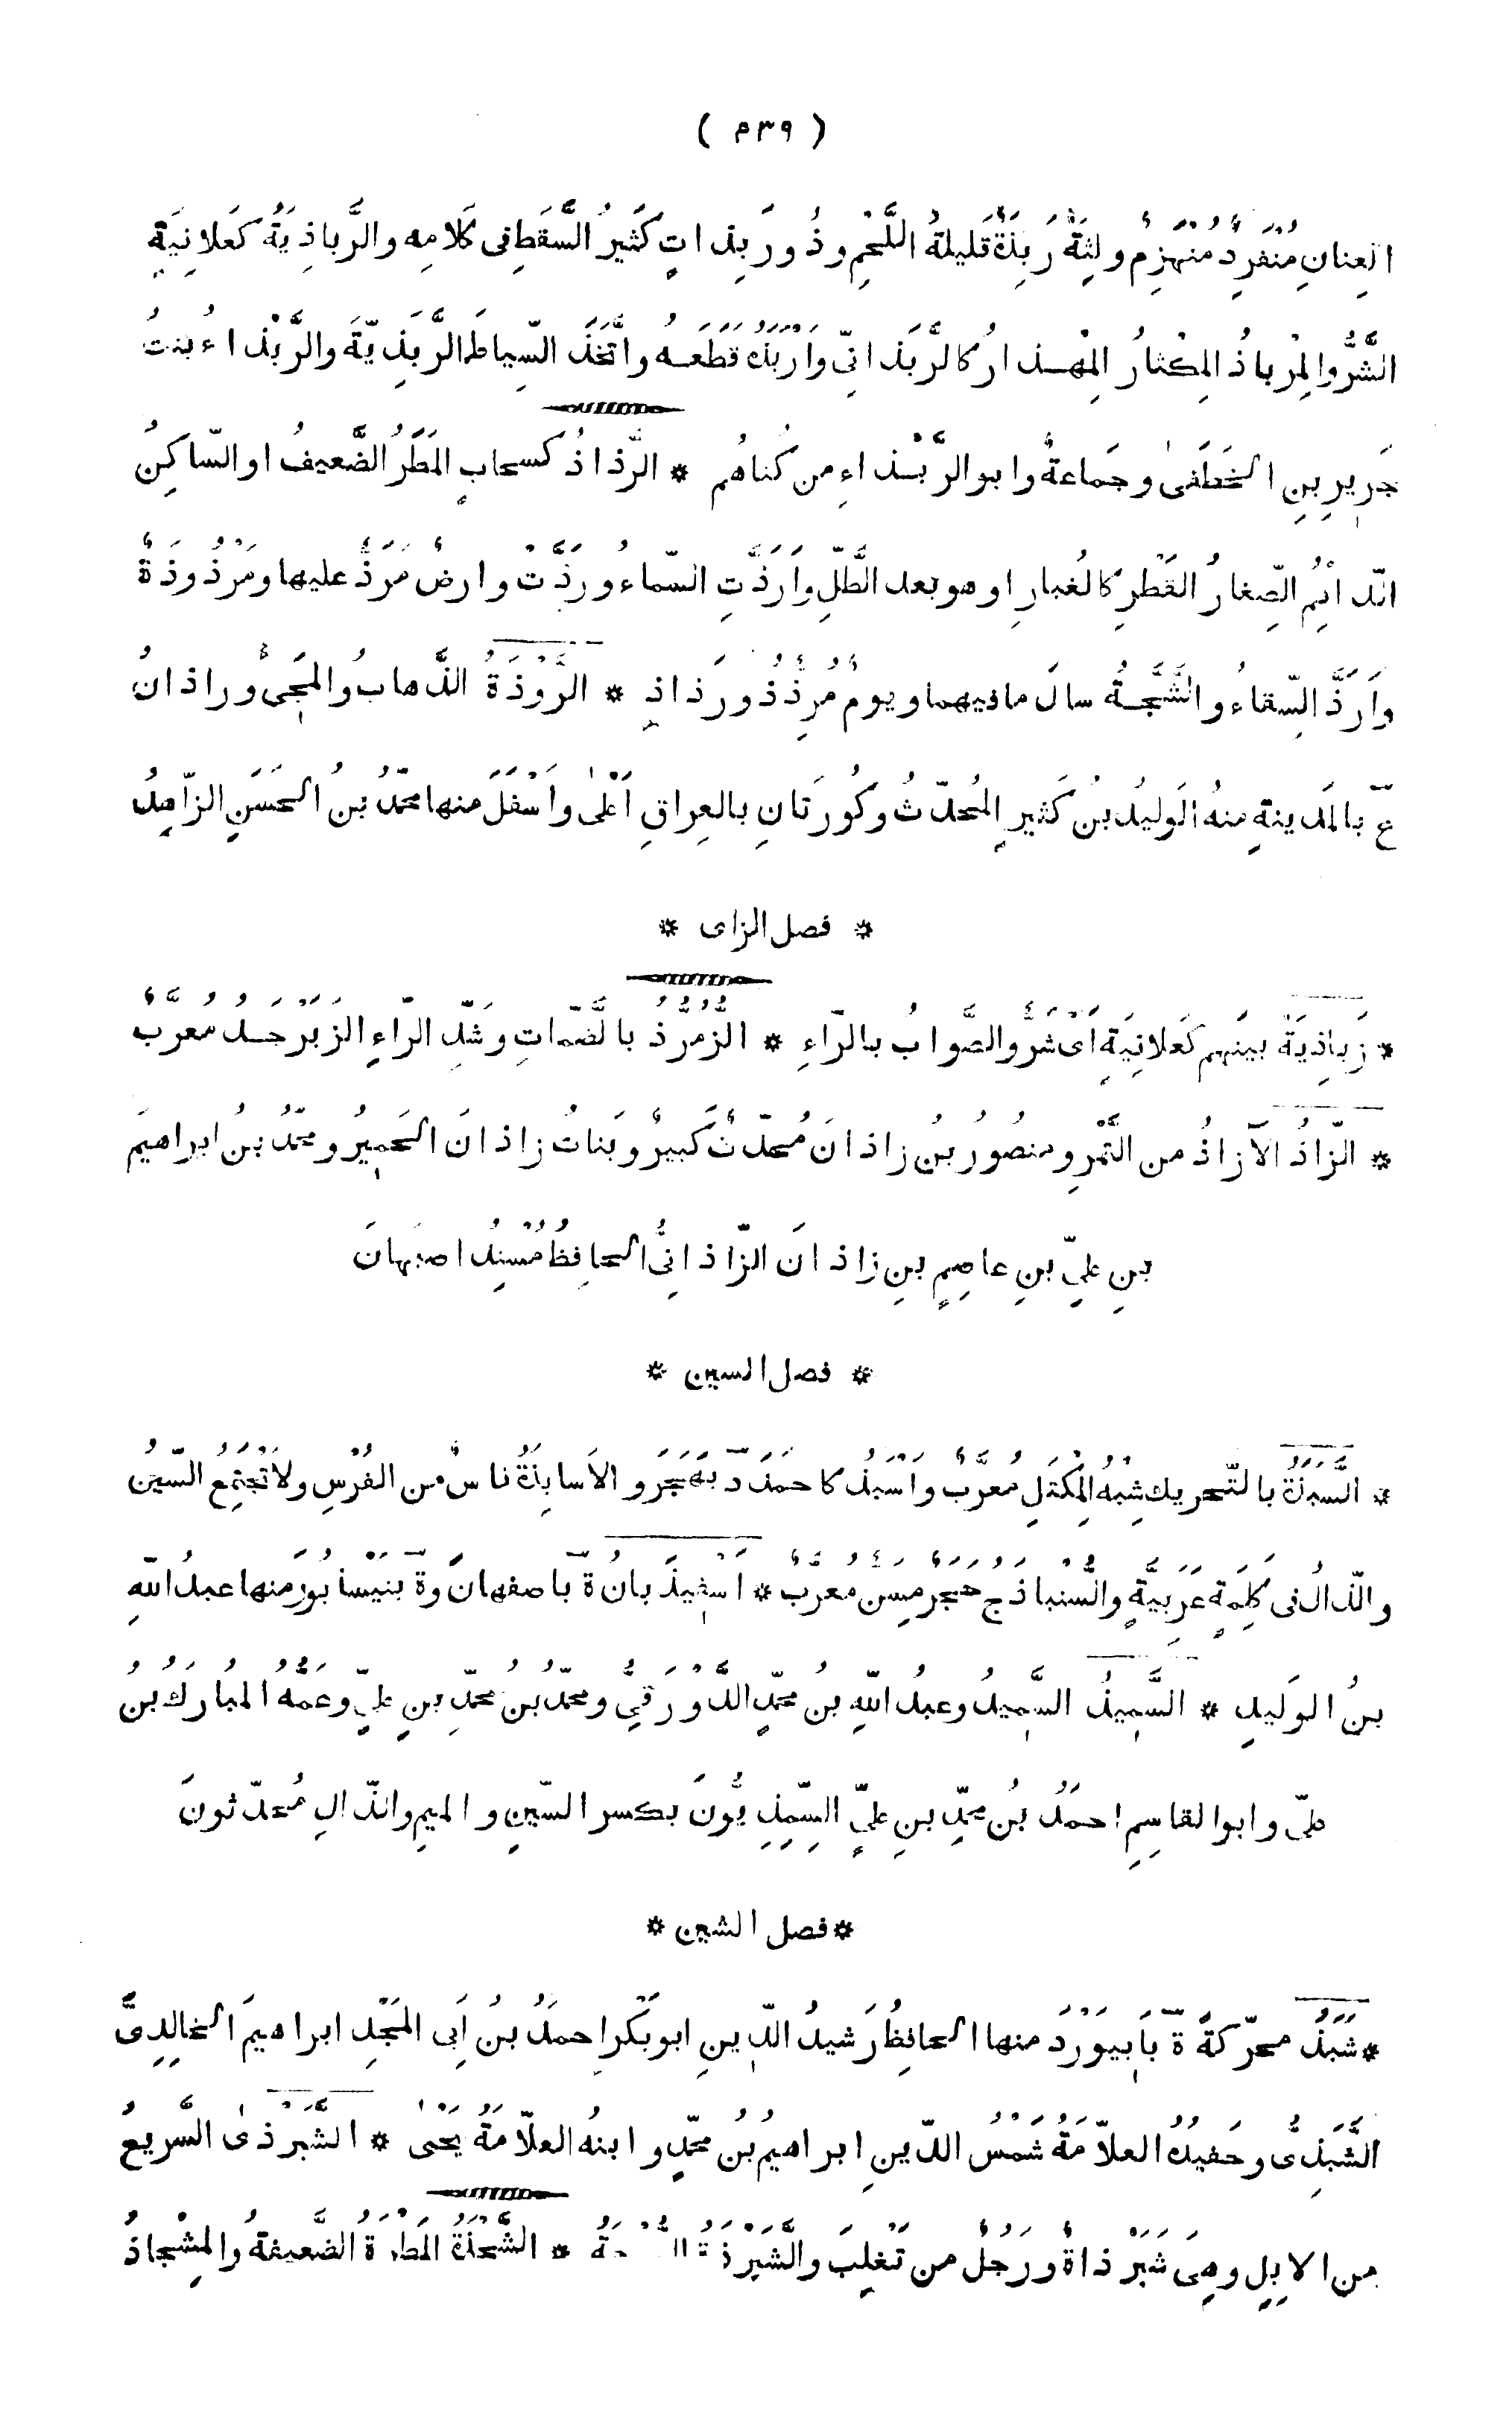 ( ٣٩م )
العِنانِ مُنْفَرِدٌ مُنْهَزِمٌ ولِثَةٌ رَبِذَةٌ قليلةُ اللَّحْمِ وذُو رَبِذاتٍ كَثيرُ السَّقَطِ فى كَلامِه والرَّباذِيَةُ كعَلانِيَةٍ
الشَّرُّ والمِرْباذُ المِكْثارُ المِهْذارُ كالرَّبَذانِىّ واَرْبَذَهُ قَطَعَهُ واتَّخَذَ السِّياطَ الرَّبَذِيّةَ والرَّبْذاءُ بنتُ
جَريرِ بنِ الخَطَفى وجَماعةٌ وابو الرَّبْذاءِ من كُناهُم * الرَّذاذُ كسحابٍ المَطَرُ الضَّعيفُ او السّاكِنُ
الدّائِمُ الصِّغارُ القَطْرِ كالغُبارِ او هو بعد الطَّلِّ واَرَذَّتِ السّماءُ ورَذَّتْ وارضٌ مُرَذٌّ عليها ومَرْذُوذَةٌ
واَرَذَّ السِّقاءُ والشَّجَّةُ سالَ ما فيهما ويومٌ مُرِذٌّ ذُو رَذاذٍ * الرَّوْذَةُ الذَّهابُ والمَجِىُٔ وراذانُ
ع بالمَدينةِ منهُ الوَليدُ بنُ كَثيرٍ المُحدّثُ وكُورَتانِ بالعِراقِ اَعْلى واَسْفَلَ منها محمّدُ بنُ الحَسَنِ الزّاهِدُ
* فصل الزاى *
* زَباذِيَةٌ بينَهم كعَلانِيَةٍ اَى شَرٌّ والصَّوابُ بالرّاءِ * الزُّمُرُّذُ بالضَّمّاتِ وشَدِّ الرّاءِ الزَبَرْجَدُ مُعرّبٌ
* الزّاذُ الآزاذُ من التَّمْرِ ومنصُورُ بنُ زاذانَ مُحدّثٌ كَبيرٌ وبَناتُ زاذانَ الحَمِيرُ ومحمّدُ بنُ ابراهيمَ
بنِ علىّ بنِ عاصِمِ بنِ زاذانَ الزّاذانِىُّ الحافِظُ مُسْنِدُ اصبَهانَ
* فصل السين *
* السَّبَذَةُ بالتّحريك شِبْهُ المِكْتَلِ معرّبٌ واَسْبَذُ كاحمَدَ د بهَجَرَ والاَسابِذَةُ ناسٌ من الفُرْسِ ولا تجتَمِعُ السّينُ
والذّالُ فى كَلِمَةٍ عَرَبيَّةٍ والسُّنْباذَجُ حَجَرُ مِسَنٍّ مُعرّبٌ * اَسْفِيذَبانُ ة باَصفهانَ وة بنَيْسابُورَ منها عبدُ اللّٰهِ
بنُ الوَليدِ * السَّمِيذُ السَّمِيدُ وعبدُ اللّٰهِ بنُ محمّدٍ الدَّوْرَقِىُّ ومحمّدُ بنُ محمّدِ بنِ علىٍّ وعَمُّهُ المُبارَكُ بنُ
علىّ وابو القاسِمِ احمَدُ بنُ محمّدِ بنِ علىٍّ السِّمِّذِيُّونَ بكسر السّينِ والميمِ والذّالِ مُحدّثونَ
* فصل الشين *
* شَبَذُ محرّكَةً ة باَبيوَرْدَ منها الحافِظُ رَشيدُ الدّينِ ابو بَكْر احمَدُ بنُ اَبى المَجْدِ ابراهيمَ الخالِدِىُّ
الشَّبَذِىُّ وحَفيدُهُ العلاّمَةُ شَمْسُ الدّينِ ابراهيمُ بنُ محمّدٍ وابنُه العلاّمَةُ يَحْيى * الشَّبَرْذى السَّريعُ
من الاِبِلِ وهِىَ شَبَرْذاةٌ ورَجُلٌ من تَغْلِبَ والشَّبَرْذَةُ * الشَّجْذَةُ المَطْرَةُ الضَّعيفةُ والمِشْجاذُ